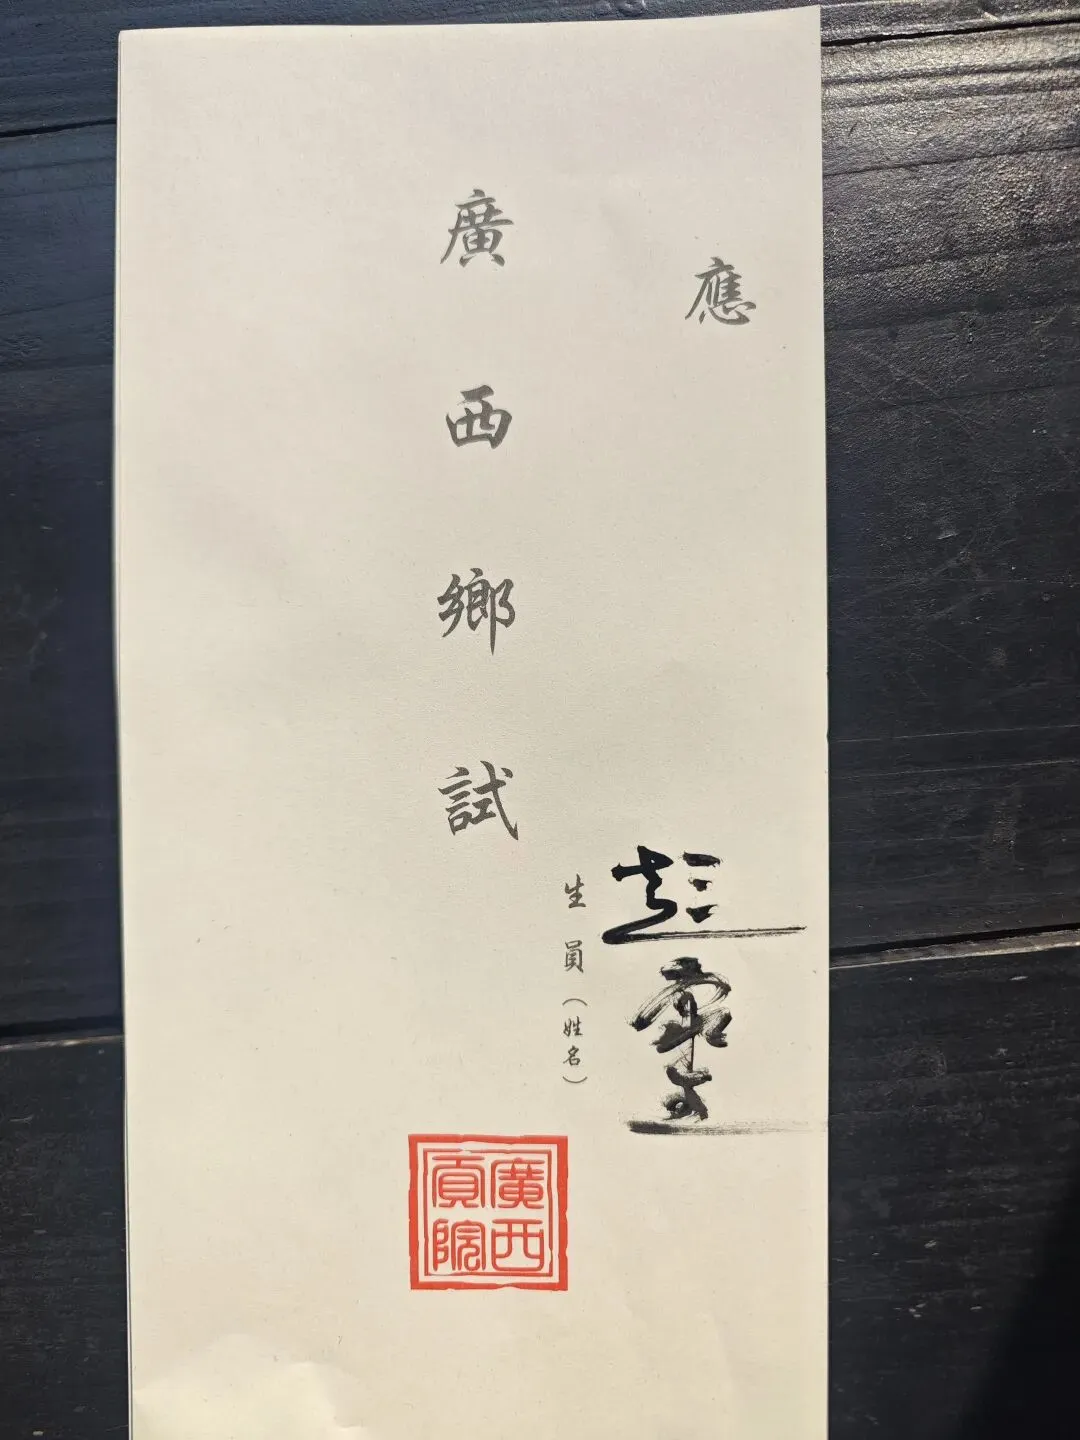 應
生員（姓名）
廣西鄉試
廣西
貢院